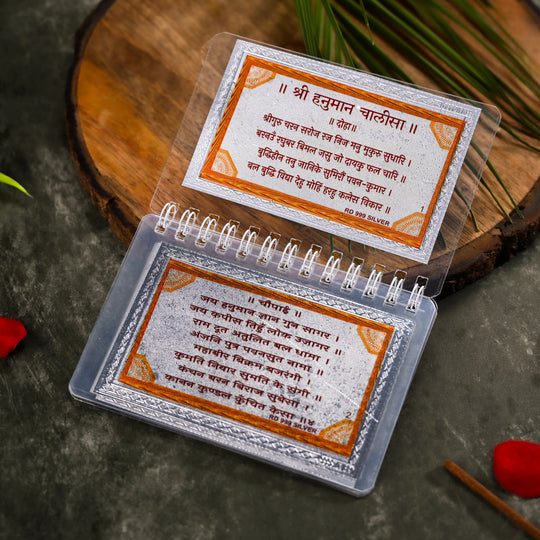 ॥ श्री हनुमान चालीसा ॥
॥ दोहा॥
श्रीगुरु चरन सरोज रज निज मनु मुकुरु सुधारि ।
बरनउँ रघुबर बिमल जसु जो दायकु फल चारि ॥
बुद्धिहीन तनु जानिके सुमिरौं पवन-कुमार ।
बल बुद्धि विद्या देहु मोहिं हरहु कलेस विकार ॥
1
RD 999 SILVER
॥ चौपाई ॥
जय हनुमान ज्ञान गुन सागर ।
जय कपीस तिहुँ लोक उजागर ॥
राम दूत अतुलित बल धामा ।
अंजनि पुत्र पवनसुत नामा ॥
महाबीर बिक्रम बजरंगी ।
कुमति निवार सुमति के संगी ॥
कंचन बरन बिराज सुबेसा ।
कानन कुण्डल कुंचित केसा ॥४
2
RD 999 SILVER